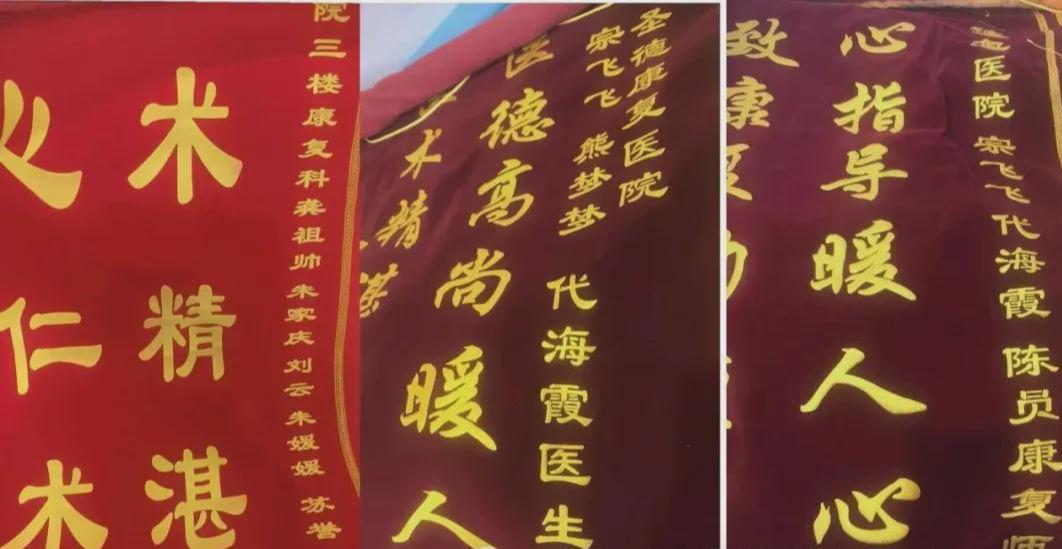 院三楼康复科龚祖帅朱家庆刘云朱媛媛 苏誉
术精湛
心仁术
圣德康复医院
宗飞飞 熊梦梦
代海霞医生
医德高尚暖人
术精湛
医院 宗飞飞代海霞 陈员康复师
心指导暖人心
致康复